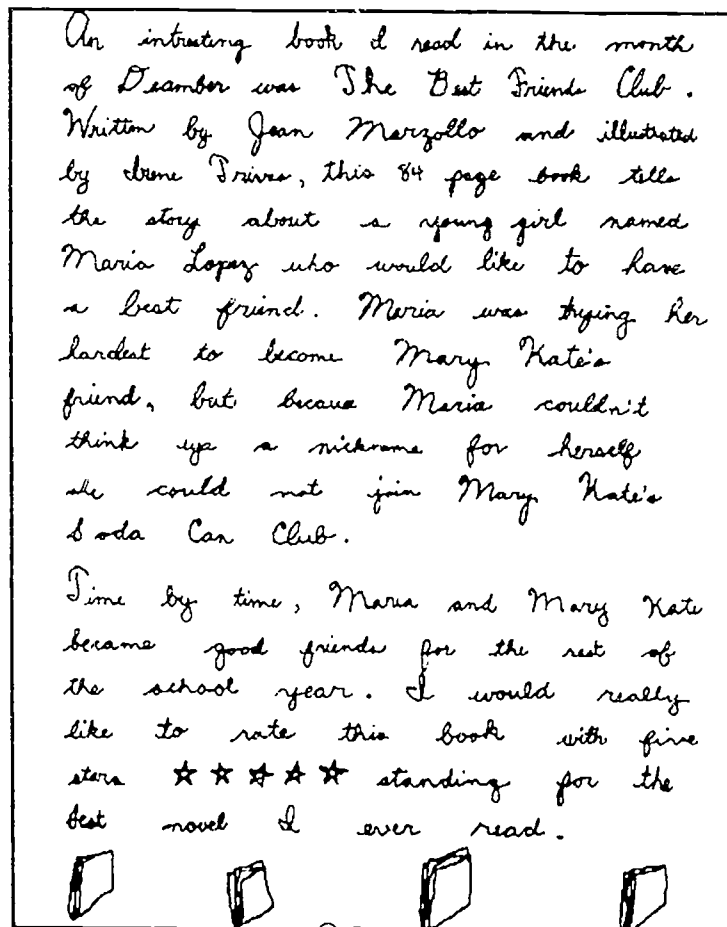 An intresting book I read in the month
of Deamber was The Best Friends Club.
Written by Joan Marzollo and illustrated
by Irene Trivas, this 84 page book tells
the story about a young girl named
Maria Lopez who would like to have
a best friend. Maria was trying her
hardest to become Mary Kate's
friend, but becaue Maria couldn't
think up a nickname for herself
she could not join Mary Kate's
Soda Can Club.
Time by time, Maria and Mary Kate
became good friends for the rest of
the school year. I would really
like to rate this book with five
stars ☆☆☆☆☆ standing for the
best novel I ever read.